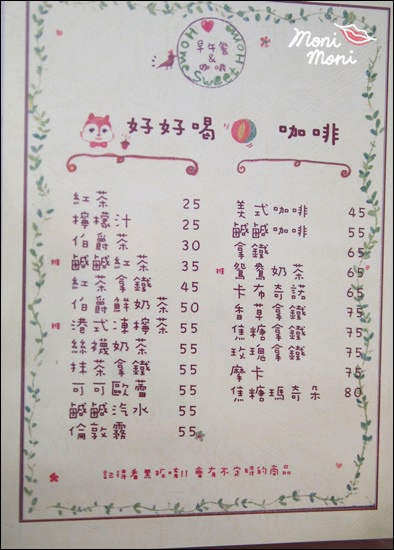 Moni
Moni
Home Sweet Home
早午餐
&
咖啡
好好喝
紅茶 25
檸檬汁 25
伯爵茶 30
推 鹹鹹紅茶 35
紅茶拿鐵 45
伯爵鮮奶茶 50
推 港式凍檸茶 55
絲襪奶茶 55
抹茶拿鐵 55
可可歐蕾 55
鹹鹹汽水 55
倫敦霧 55
咖啡
美式咖啡 45
鹹鹹咖啡 55
拿鐵 65
推 鴛鴦奶茶 65
卡布奇諾 65
香草拿鐵 75
焦糖拿鐵 75
玫瑰拿鐵 75
摩卡 75
焦糖瑪奇朵 80
記得看黑板唷!! 會有不定時的商品